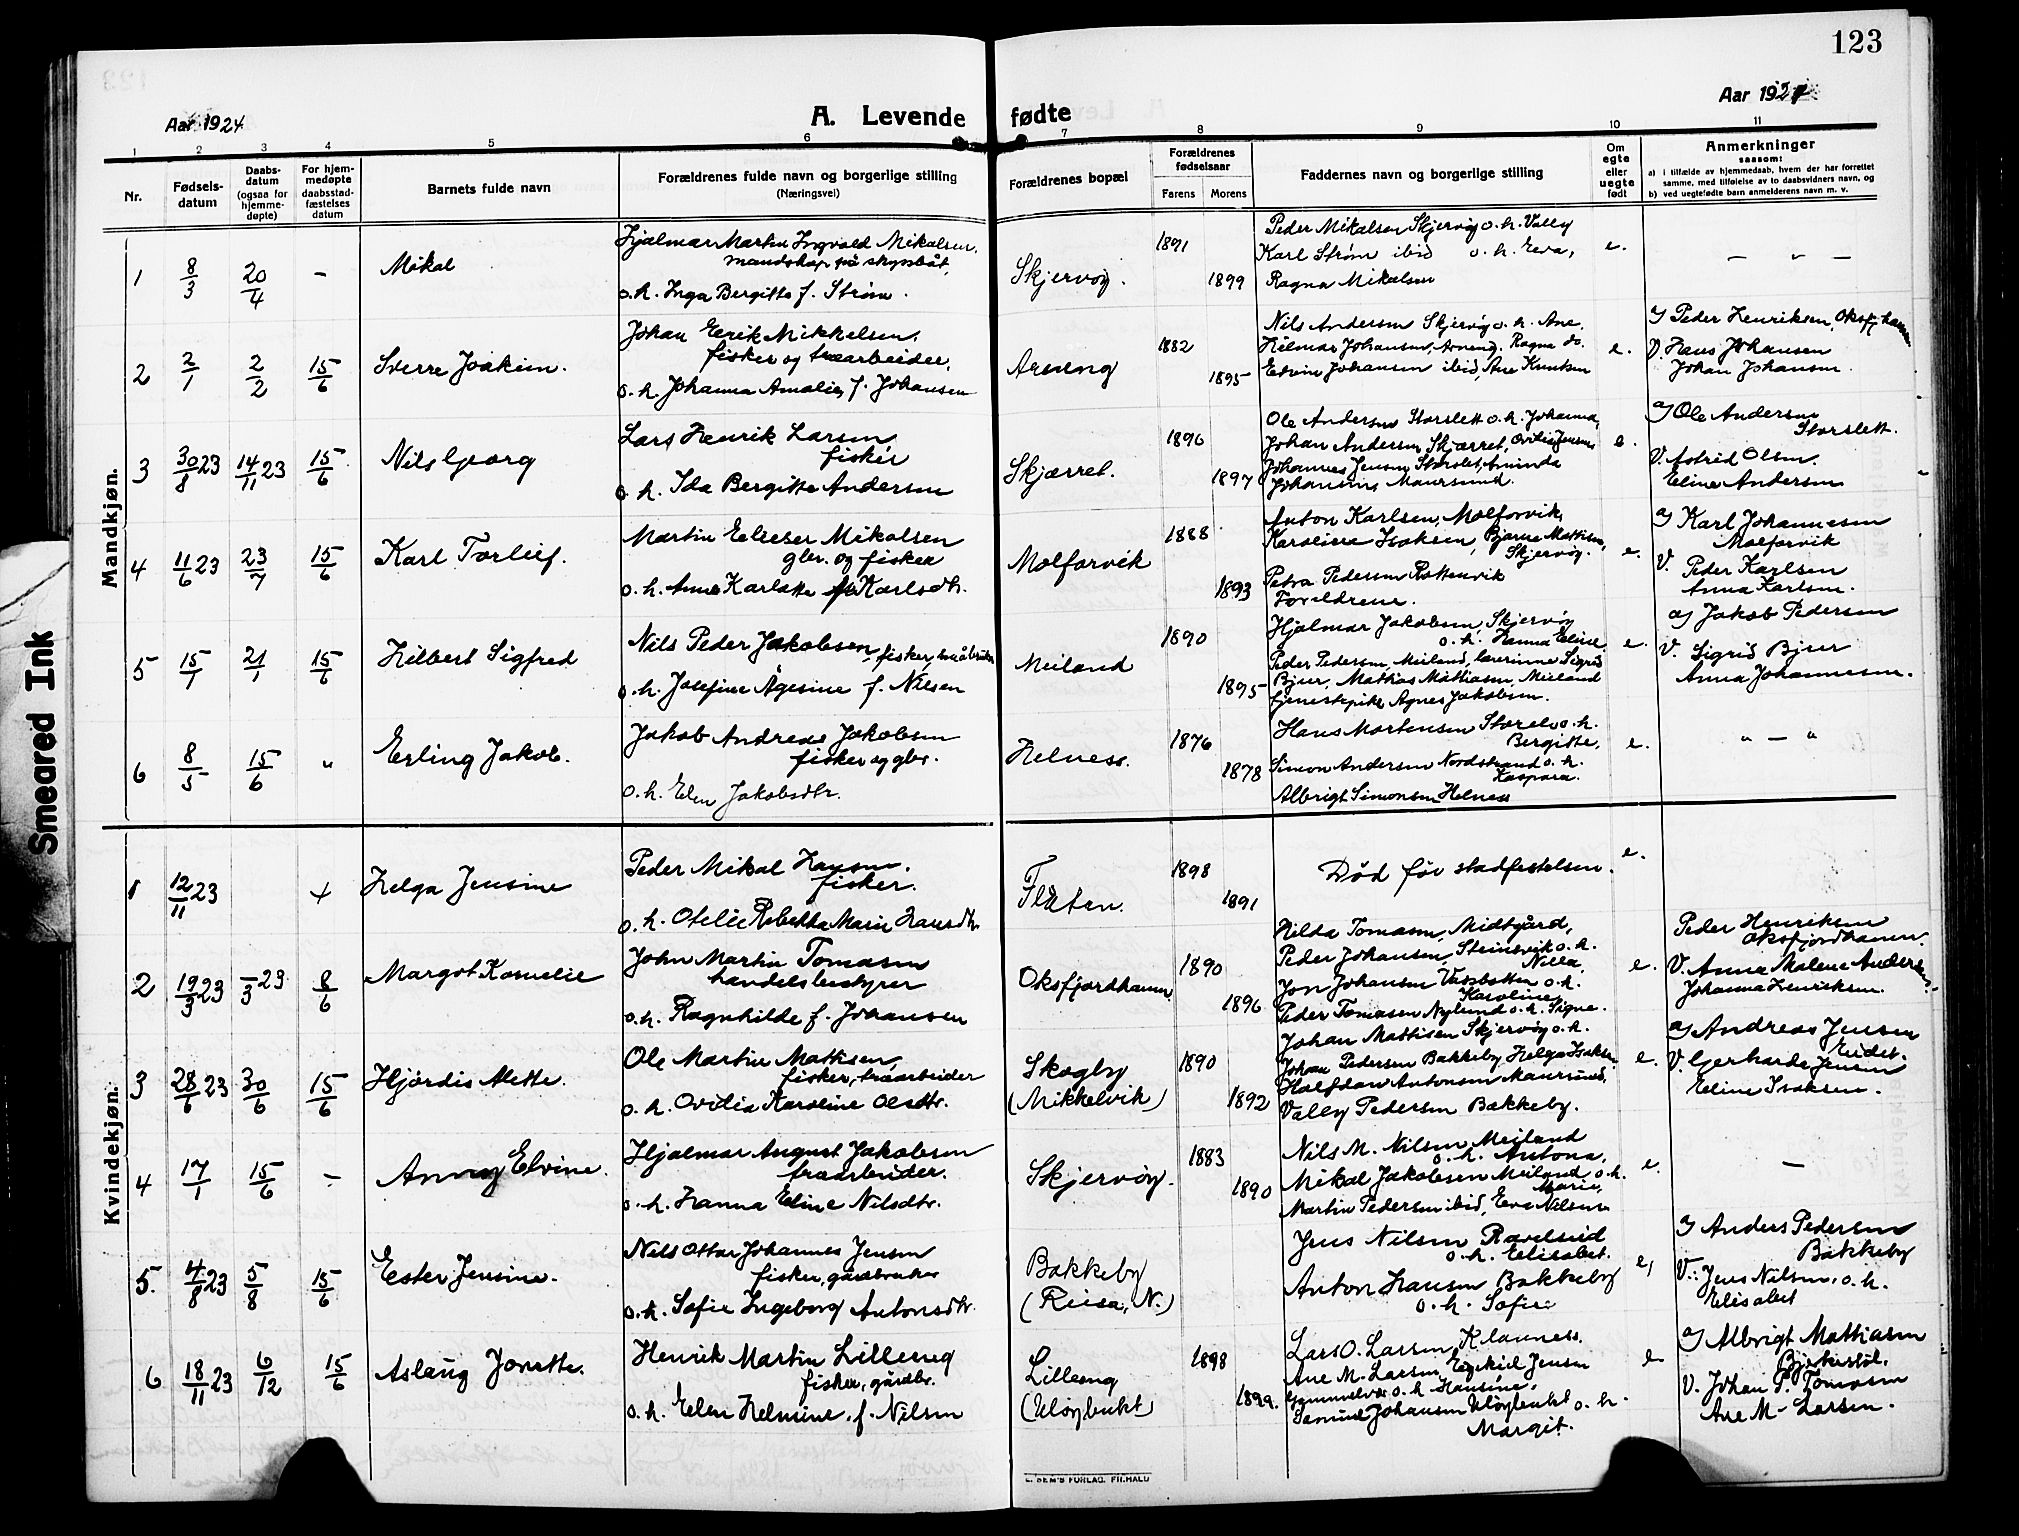 123
Aar 1924
A. Levende fødte
Aar 1924
1 2 3 4 5 6 7 8 9 10 11
Nr.
Fødsels-
datum
Daabs-
datum
(ogsaa for
hjemme-
døpte)
For hjem-
medøpte
daabsstad-
fæstelses
datum
Barnets fulde navn
Forældrenes fulde navn og borgerlige stilling
(Næringsvei)
Forældrenes bopæl
Forældrenes
fødselsaar
Farens Morens
Faddernes navn og borgerlige stilling
Om
egte
eller
uegte
født
Anmerkninger
saasom:
a) i tilfælde av hjemmedaab, hvem der har forrettet
samme, med tilføielse av to daabsvidners navn, og
b) ved uegtefødte barn anmelderens navn m. v.
Mandkjøn.
1 8/3 20/4 – Mikal
Hjalmar Martin Ingvald Mikalsen.
mandskap på skyssbåt,
o.h. Inga Bergitte f. Strøm.
Skjervøy.
1891
1899
Peder Mikalsen Skjervøy o.h. Vally
Karl Strøm ibid o.h. Eva,
Ragna Mikalsen
e.
– " –
2 2/1 2/2 15/6 Sverre Joakim.
Johan Erik Mikkelsen,
fisker og træarbeider,
o.h. Johanna Amalie, f. Johansen
Arneng
1882
1895
Nils Andersen Skjervøy o.h. Ane,
Hilmar Johansen, Arneng, Ragna do.
Edvin Johansen ibid, Ane Knutsen
e.
a) Peder Henriksen, Oksfj.hamn
V. Hans Johansen
Johan Johansen.
3 30/8 23 14/11 23 15/6 Nils Georg
Lars Henrik Larsen
fisker
o.h. Ida Bergitte Andersen
Skjærret.
1896
1897
Ole Andersen Storslett o.h. Johanna,
Johan Andersen Skjærret, Ovilie Jensen
Johannes Jensen Storslet, Aminda
Johansen, Maursund.
e.
a) Ole Andersen
Storslett.
V. Astrid Olsen.
Eline Andersen
4 11/6 23 23/7 15/6 Karl Torleif.
Martin Elieser Mikalsen
gbr. og fisker
o.h. Anna Karlotte Karlsdtr.
Molforvik
1888
1893
Anton Karlsen, Molforvik,
Karoline Isaksen, Bjarne Mattisen,
Skjervøy.
Petra Pedersen Rottenvik
Foreldrene.
e.
a) Karl Johannesen
Molforvik
V. Peder Karlsen
Anna Karlsen.
5 15/1 21/1 15/6 Hilbert Sigfred
Nils Peder Jakobsen, fisker, småbruker
o.h. Josefine Ågesine f. Nilsen
Meiland
1890
1895
Hjalmar Jakobsen, Skjervøy
o.h. Hanna Eline,
Peder Pedersen, Meiland, lærerinne Sigrid
Bjur, Mathias Mathiasen, Meiland
tjenestepike Agnes Jakobsen.
e.
a) Jakob Pedersen
V. Sigrid Bjur
Anna Johannesen.
6 8/5 15/6 " Erling Jakob.
Jakob Andreas Jakobsen
fisker og gbr.
o.h. Elen Jakobsdtr.
Helness.
1876
1878
Hans Mortensen Storel. o.h.
Bergitte,
Simon Andersen Nordstrand o.h.
Kaspara.
Albrigt Simonsen Helness
e.
" – "
Kvindekjøn.
1 12/11 23 + Helga Jensine
Peder Mikal Hansen.
fisker.
o.h. Otelie Robertha Marie Hansdtr.
Flåten.
1898
1891
Død før stadfestelsen.
e.
2 19/3 23 –/3 23 8/6 Margot Kornelie
John Martin Tomasen
handelsbestyrer
o.h. Ragnhilde f. Johansen
Oksfjordhamn
1890
1896
Hilda Tomasen, Midtgård,
Peder Johansen, Steinsvik o.h.
Nilla,
Jon Johansen Vassbotten o.h.
Karoline,
Peder Tomasen Nylund o.h. Signe.
e.
Peder Henriksen
Oksfjordhamn.
V. Anna Malene Andersen.
Johanna Henriksen.
3 28/6 23 30/6 15/6 Hjørdis Mette.
Ole Martin Mattisen,
fisker, træarbeider
o.h. Ovidia Karoline Olsdtr.
Skogly
(Mikkelvik)
1890
1892
Johan Mattisen Skjervøy o.h.
Johan Pedersen Bakkeby, Helga Isaksen
Halfdan Antonsen Maursund.
Vally Pedersen Bakkeby.
e.
a) Andreas Jensen
Eidet.
V. Gerharde Jensen
Eline Isaksen.
4 17/1 15/6 – Anny Elvine.
Hjalmar August Jakobsen
træarbeider.
o.h. Hanna Eline Nilsdtr.
Skjervøy.
1883
1890
Nils M. Nilsen Meiland
o.h. Antona,
Mikal Jakobsen Meiland o.h.
Marie,
Martin Pedersen ibid, Eva Nilsen
e.
–
5. 4/8 23 5/8 15/6 Ester Jensine.
Nils Ottar Johannes Jensen
fisker, gårdbruker
o.h. Sofie Ingeborg Antonsdtr.
Bakkeby
(Reisa, N.)
Jens Nilsen Ravelseid
o.h. Elisabet.
Anton Hansen Bakkeby
o.h. Sofie
e,
a) Anders Pedersen
Bakkeby
V.: Jens Nilsen, o.h.
Elisabet
6 18/11 23 6/12 15/6 Aslaug Jorette.
Henrik Martin Lilleng
fisker, gårdbr.
o.h. Elen Helmine, f. Nilsen
Lilleng
(Uløybukt)
1898
1899.
Lars O. Larsen, Klauness.
Ane M. Larsen, Esekiel Jensen
o.h. Hansine,
Samuel Johansen Uløybukt o.h.
Margit.
e
a) Albrigt Mattiasen
Bjerkestøl.
V. Johan P. Tomasen
Ane M. Larsen.
E. SEM'S FORLAG, FR.HALD
Smeared Ink